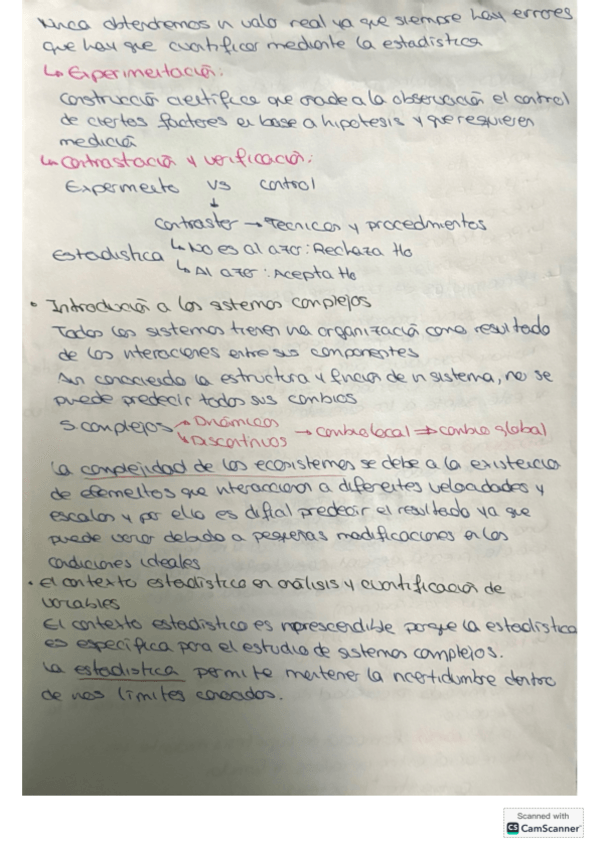 Nunca obtendremos un valor real ya que siempre hay errores
que hay que cuantificar mediante la estadística
↳ Experimentación:
Construcción científica que añade a la observación el control
de ciertos factores en base a hipotesis y que requieren
medición
↳ Contrastación y verificación:
Experimento vs control
↓
Contrastar → Técnicas y procedimientos
Estadística ↳ No es al azar: Rechaza Ho
↳ Al azar: Acepta Ho
• Introducción a los sistemas complejos
Todos los sistemas tienen una organización como resultado
de las interaciones entre sus componentes
Aun conociendo la estructura y función de un sistema, no se
puede predecir todos sus cambios
S. complejos → Dinámicos
→ Discontinuos → cambio local ⇒ cambio global
La complejidad de los ecosistemas se debe a la existencia
de elementos que interaccionan a diferentes velocidades y
escalas y por ello es dificil predecir el resultado ya que
puede venir debido a pequeñas modificaciones en las
condiciones ideales
• El contexto estadístico en análisis y cuantificación de
variables
El contexto estadístico es imprescindible porque la estadística
es específica para el estudio de sistemas complejos.
La estadística permite mantener la incertidumbre dentro
de unos límites conocidos.
Scanned with
CS CamScanner